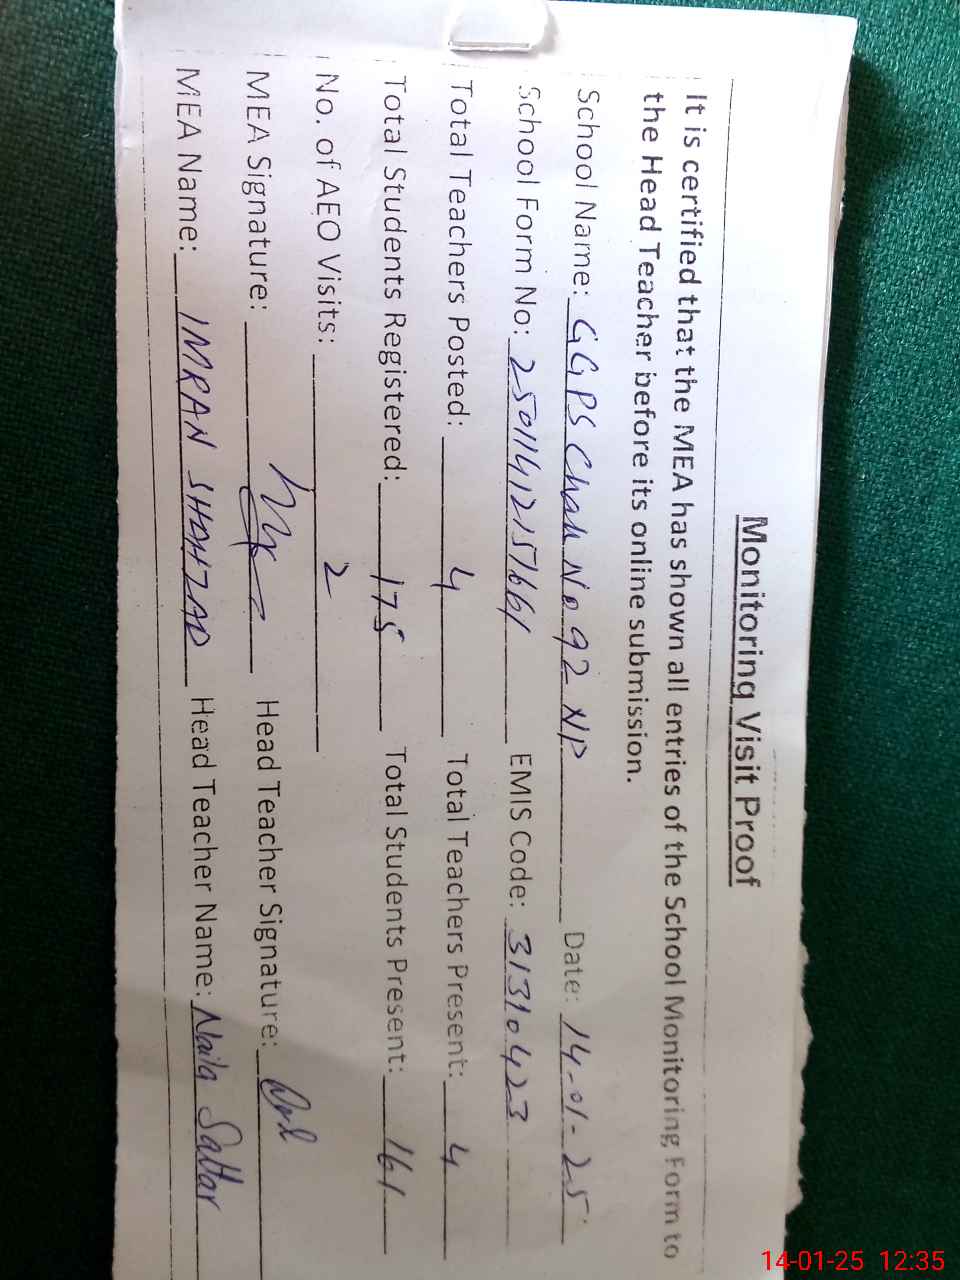 Monitoring Visit Proof
It is certified that the MEA has shown all entries of the School Monitoring Form to
the Head Teacher before its online submission.
School Name: GGPS Chak No 92 NP Date: 14-01-25
School Form No: 25011412157661 EMIS Code: 31310423
Total Teachers Posted: 4 Total Teachers Present: 4
Total Students Registered: 175 Total Students Present: 161
No. of AEO Visits: 2
MEA Signature: Head Teacher Signature:
MEA Name: IMRAN SHAHZAD Head Teacher Name: Naila Sattar
14-01-25 12:35